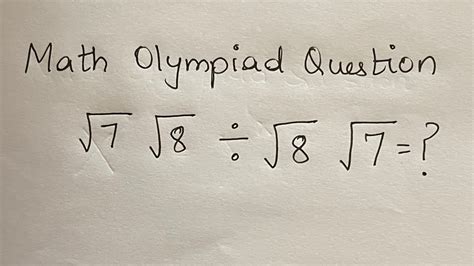 Math Olympiad Question
√7 √8 ÷ √8 √7 = ?